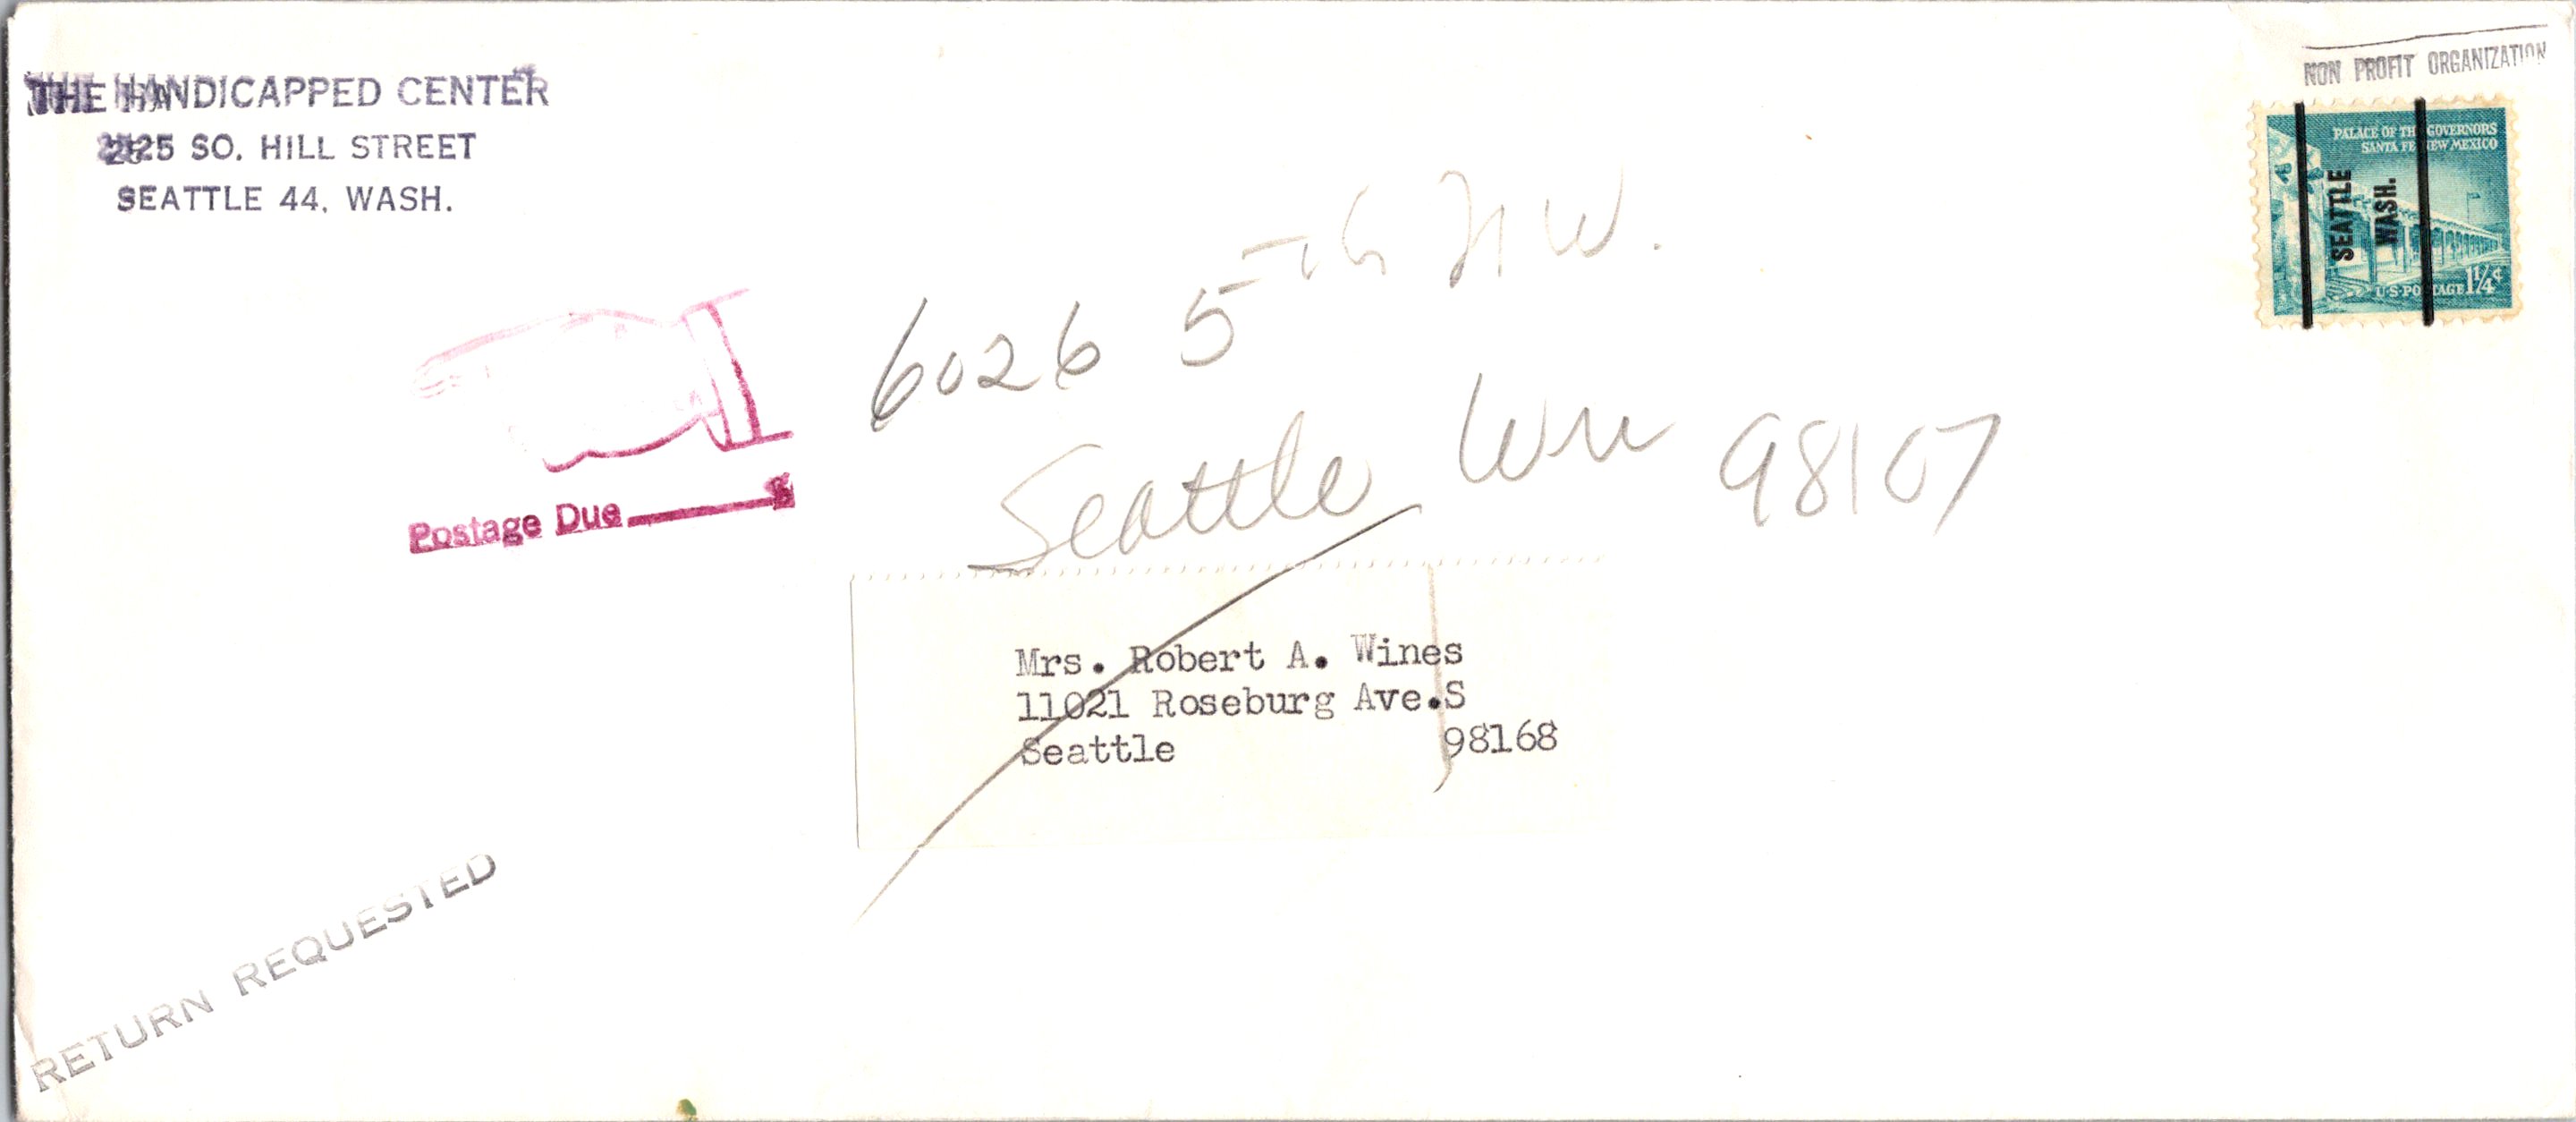 THE HANDICAPPED CENTER
2525 SO. HILL STREET
SEATTLE 44, WASH.
NON PROFIT ORGANIZATION
PALACE OF THE GOVERNORS
SANTA FE NEW MEXICO
SEATTLE
WASH.
U·S·POSTAGE 1¼¢
6026 5th NW.
Seattle Wn 98107
Postage Due
Mrs. Robert A. Wines
11021 Roseburg Ave.S
Seattle 98168
RETURN REQUESTED